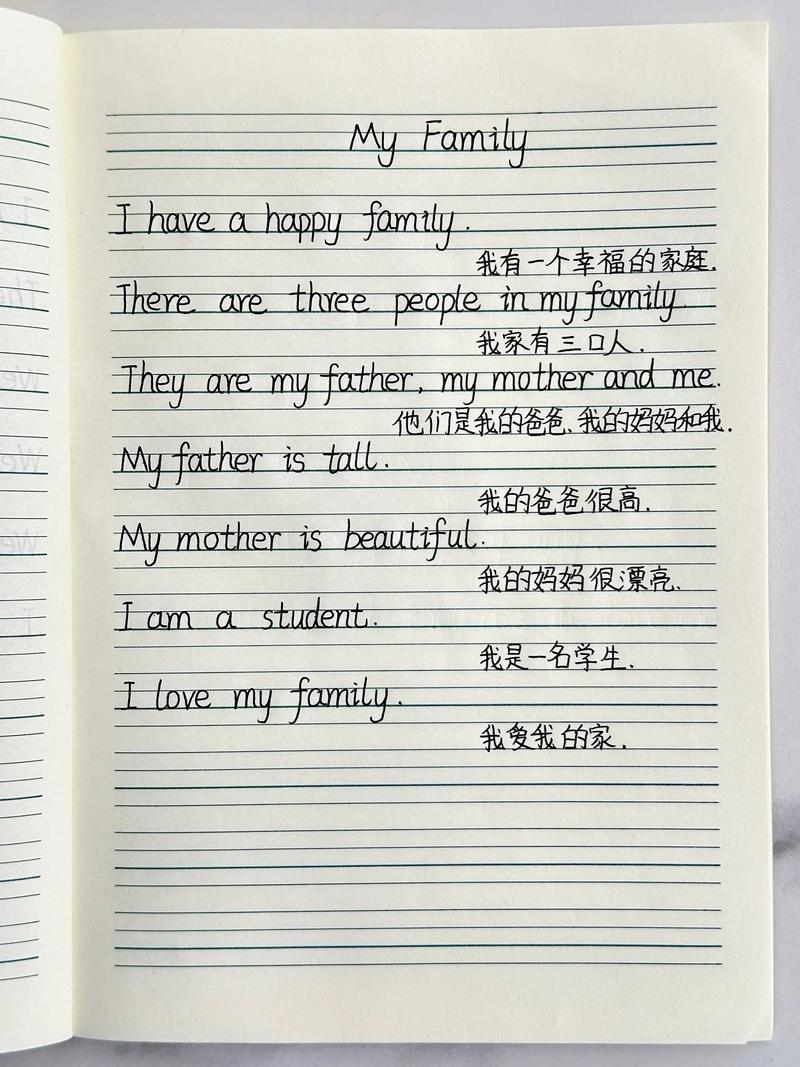 My Family
I have a happy family.
我有一个幸福的家庭.
There are three people in my family.
我家有三口人.
They are my father, my mother and me.
他们是我的爸爸、我的妈妈和我.
My father is tall.
我的爸爸很高.
My mother is beautiful.
我的妈妈很漂亮.
I am a student.
我是一名学生.
I love my family.
我爱我的家.